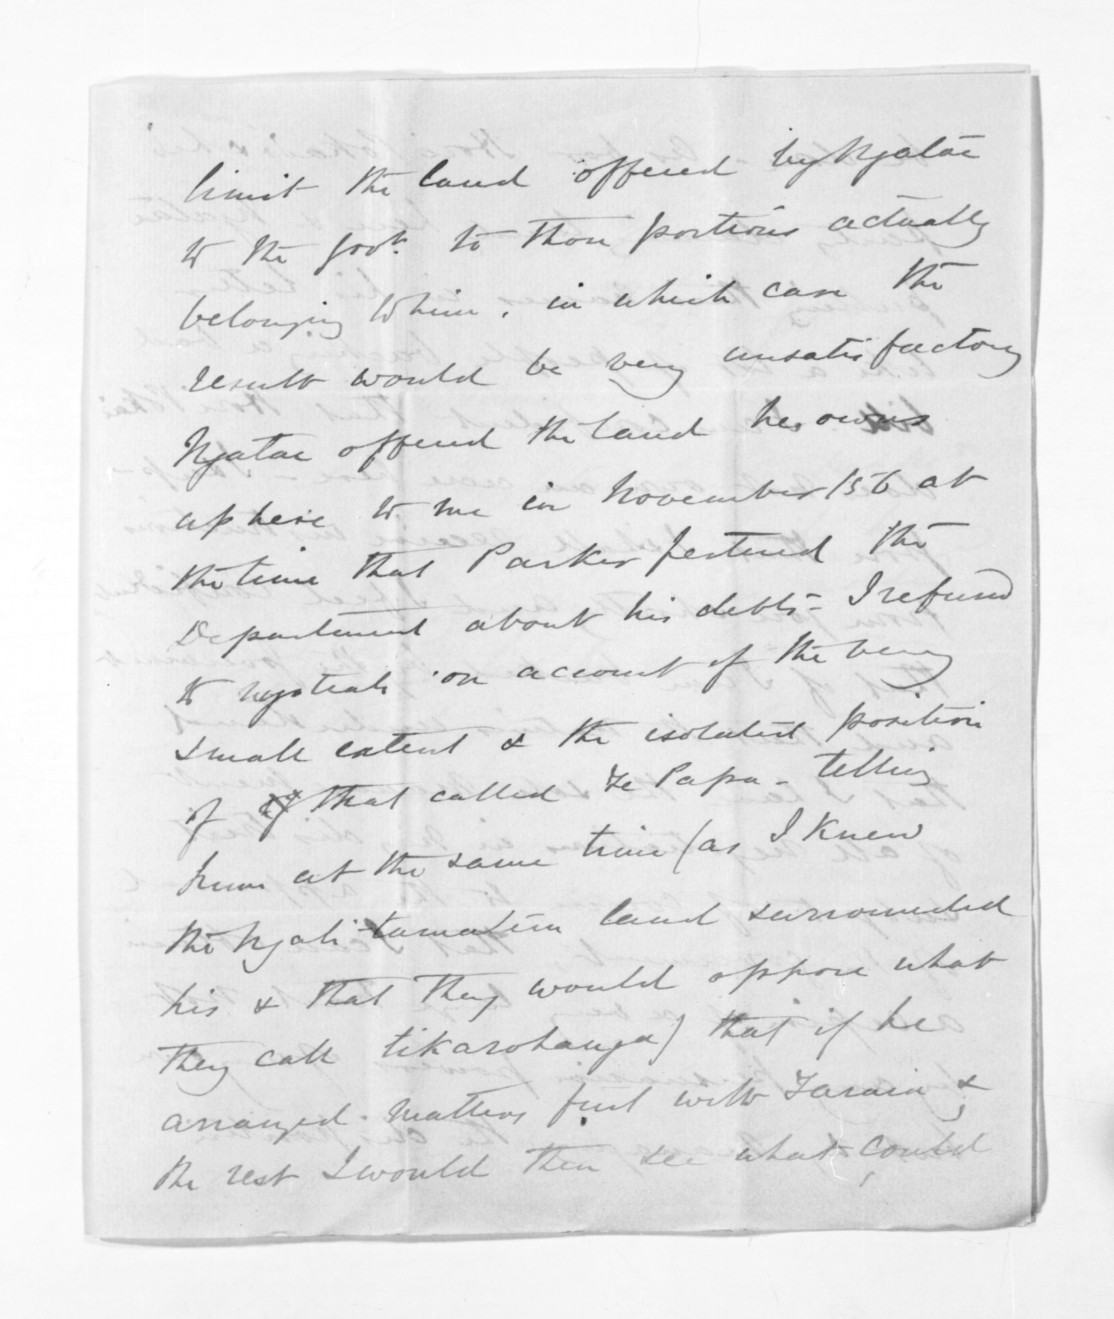 limit the land offered by Ngatae
to the Govt. to those portions actually
belonging to him, in which case the
result would be very unsatisfactory
Ngatae offered the land he owns
up here to me in November /56 at
the time that Parker pestered the
Department about his debts - I refused
to negotiate on account of the very
small extent & the isolated position
of that called Te Papa - telling
him at the same time (as I knew
the Ngati-tamatera land surrounded
his & that they would oppose what
they call tikarohanga) that if he
arranged matters first with Taraia &
the rest I would then see what could